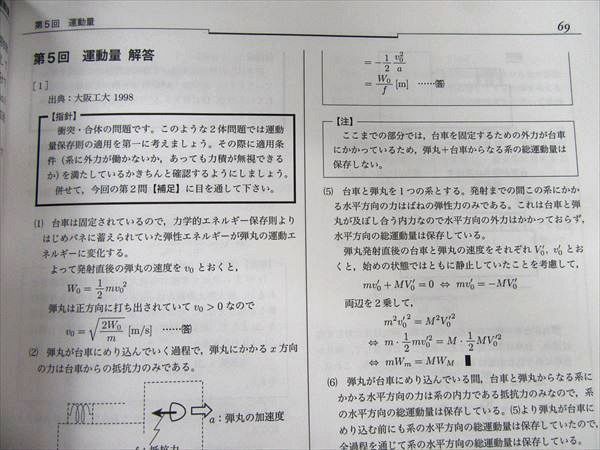 第5回 運動量
69
第5回 運動量 解答
[1]
出典：大阪工大 1998
【指針】
衝突・合体の問題です。このような2体問題では運動
量保存則の適用を第一に考えましょう。その際に適用条
件（系に外力が働かないか，あっても力積が無視できる
か）を満たしているかきちんと確認するようにしましょう。
併せて，今回の第2問【補足】に目を通して下さい。
(1) 台車は固定されているので，力学的エネルギー保存則より
はじめバネに蓄えられていた弾性エネルギーが弾丸の運動エ
ネルギーに変化する。
よって発射直後の弾丸の速度を v₀ とおくと，
W₀ = 1/2 mv₀²
弾丸は正方向に打ち出されていて v₀ > 0 なので
v₀ = √(2W₀/m) [m/s] ……㊕
(2) 弾丸が台車にめり込んでいく過程で，弾丸にかかる x 方向
の力は台車からの抵抗力のみである。
a：弾丸の加速度
抵抗力
= −1/2 v₀²/a
= W₀/f [m] ……㊕
【注】
ここまでの部分では，台車を固定するための外力が台車
にかかっているため，弾丸＋台車からなる系の総運動量は
保存しない。
(5) 台車と弾丸を1つの系とする。発射までの間この系にかか
る水平方向の力はばねの弾性力のみである。これは台車と弾
丸が及ぼし合う内力なので水平方向の外力はかかっておらず，
水平方向の総運動量は保存している。
弾丸発射直後の台車と弾丸の速度をそれぞれ V₀′, v₀′ とお
くと，始めの状態ではともに静止していたことを考慮して，
mv₀′ + MV₀′ = 0 ⇔ mv₀′ = −MV₀′
両辺を2乗して，
m²v₀′² = M²V₀′²
⇔ m · 1/2 mv₀′² = M · 1/2 MV₀′²
⇔ mWₘ = MW_M ∎
(6) 弾丸が台車にめり込んでいる間，台車と弾丸からなる系に
かかる水平方向の力は系の内力である抵抗力のみなので，系
の水平方向の総運動量は保存している。(5)より弾丸が台車に
めり込む前にも系の水平方向の総運動量は保存していたので，
全過程を通じて系の水平方向の総運動量は保存している。